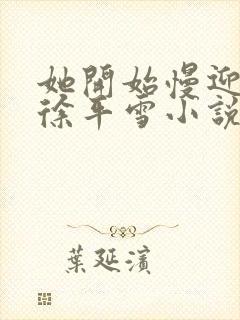 她開始慢迎
徐平雪小說
葉延濱